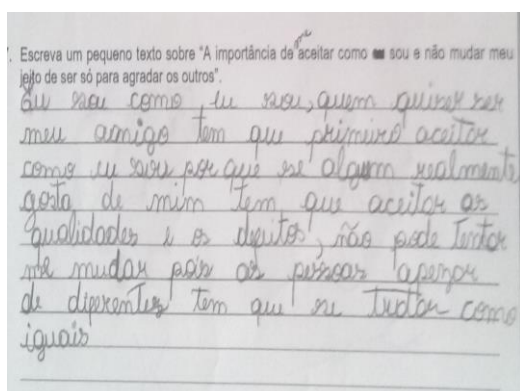 me
. Escreva um pequeno texto sobre "A importância de aceitar como sou e não mudar meu
jeito de ser só para agradar os outros".
Eu sou como eu sou, quem quiser ser
meu amigo tem que primeiro aceitar
como eu sou por que se algum realmente
gosta de mim tem que aceitar as
qualidades e os defeitos, não pode tentar
me mudar pois as pessoas apenar
de diferentes tem que se tratar como
iguais